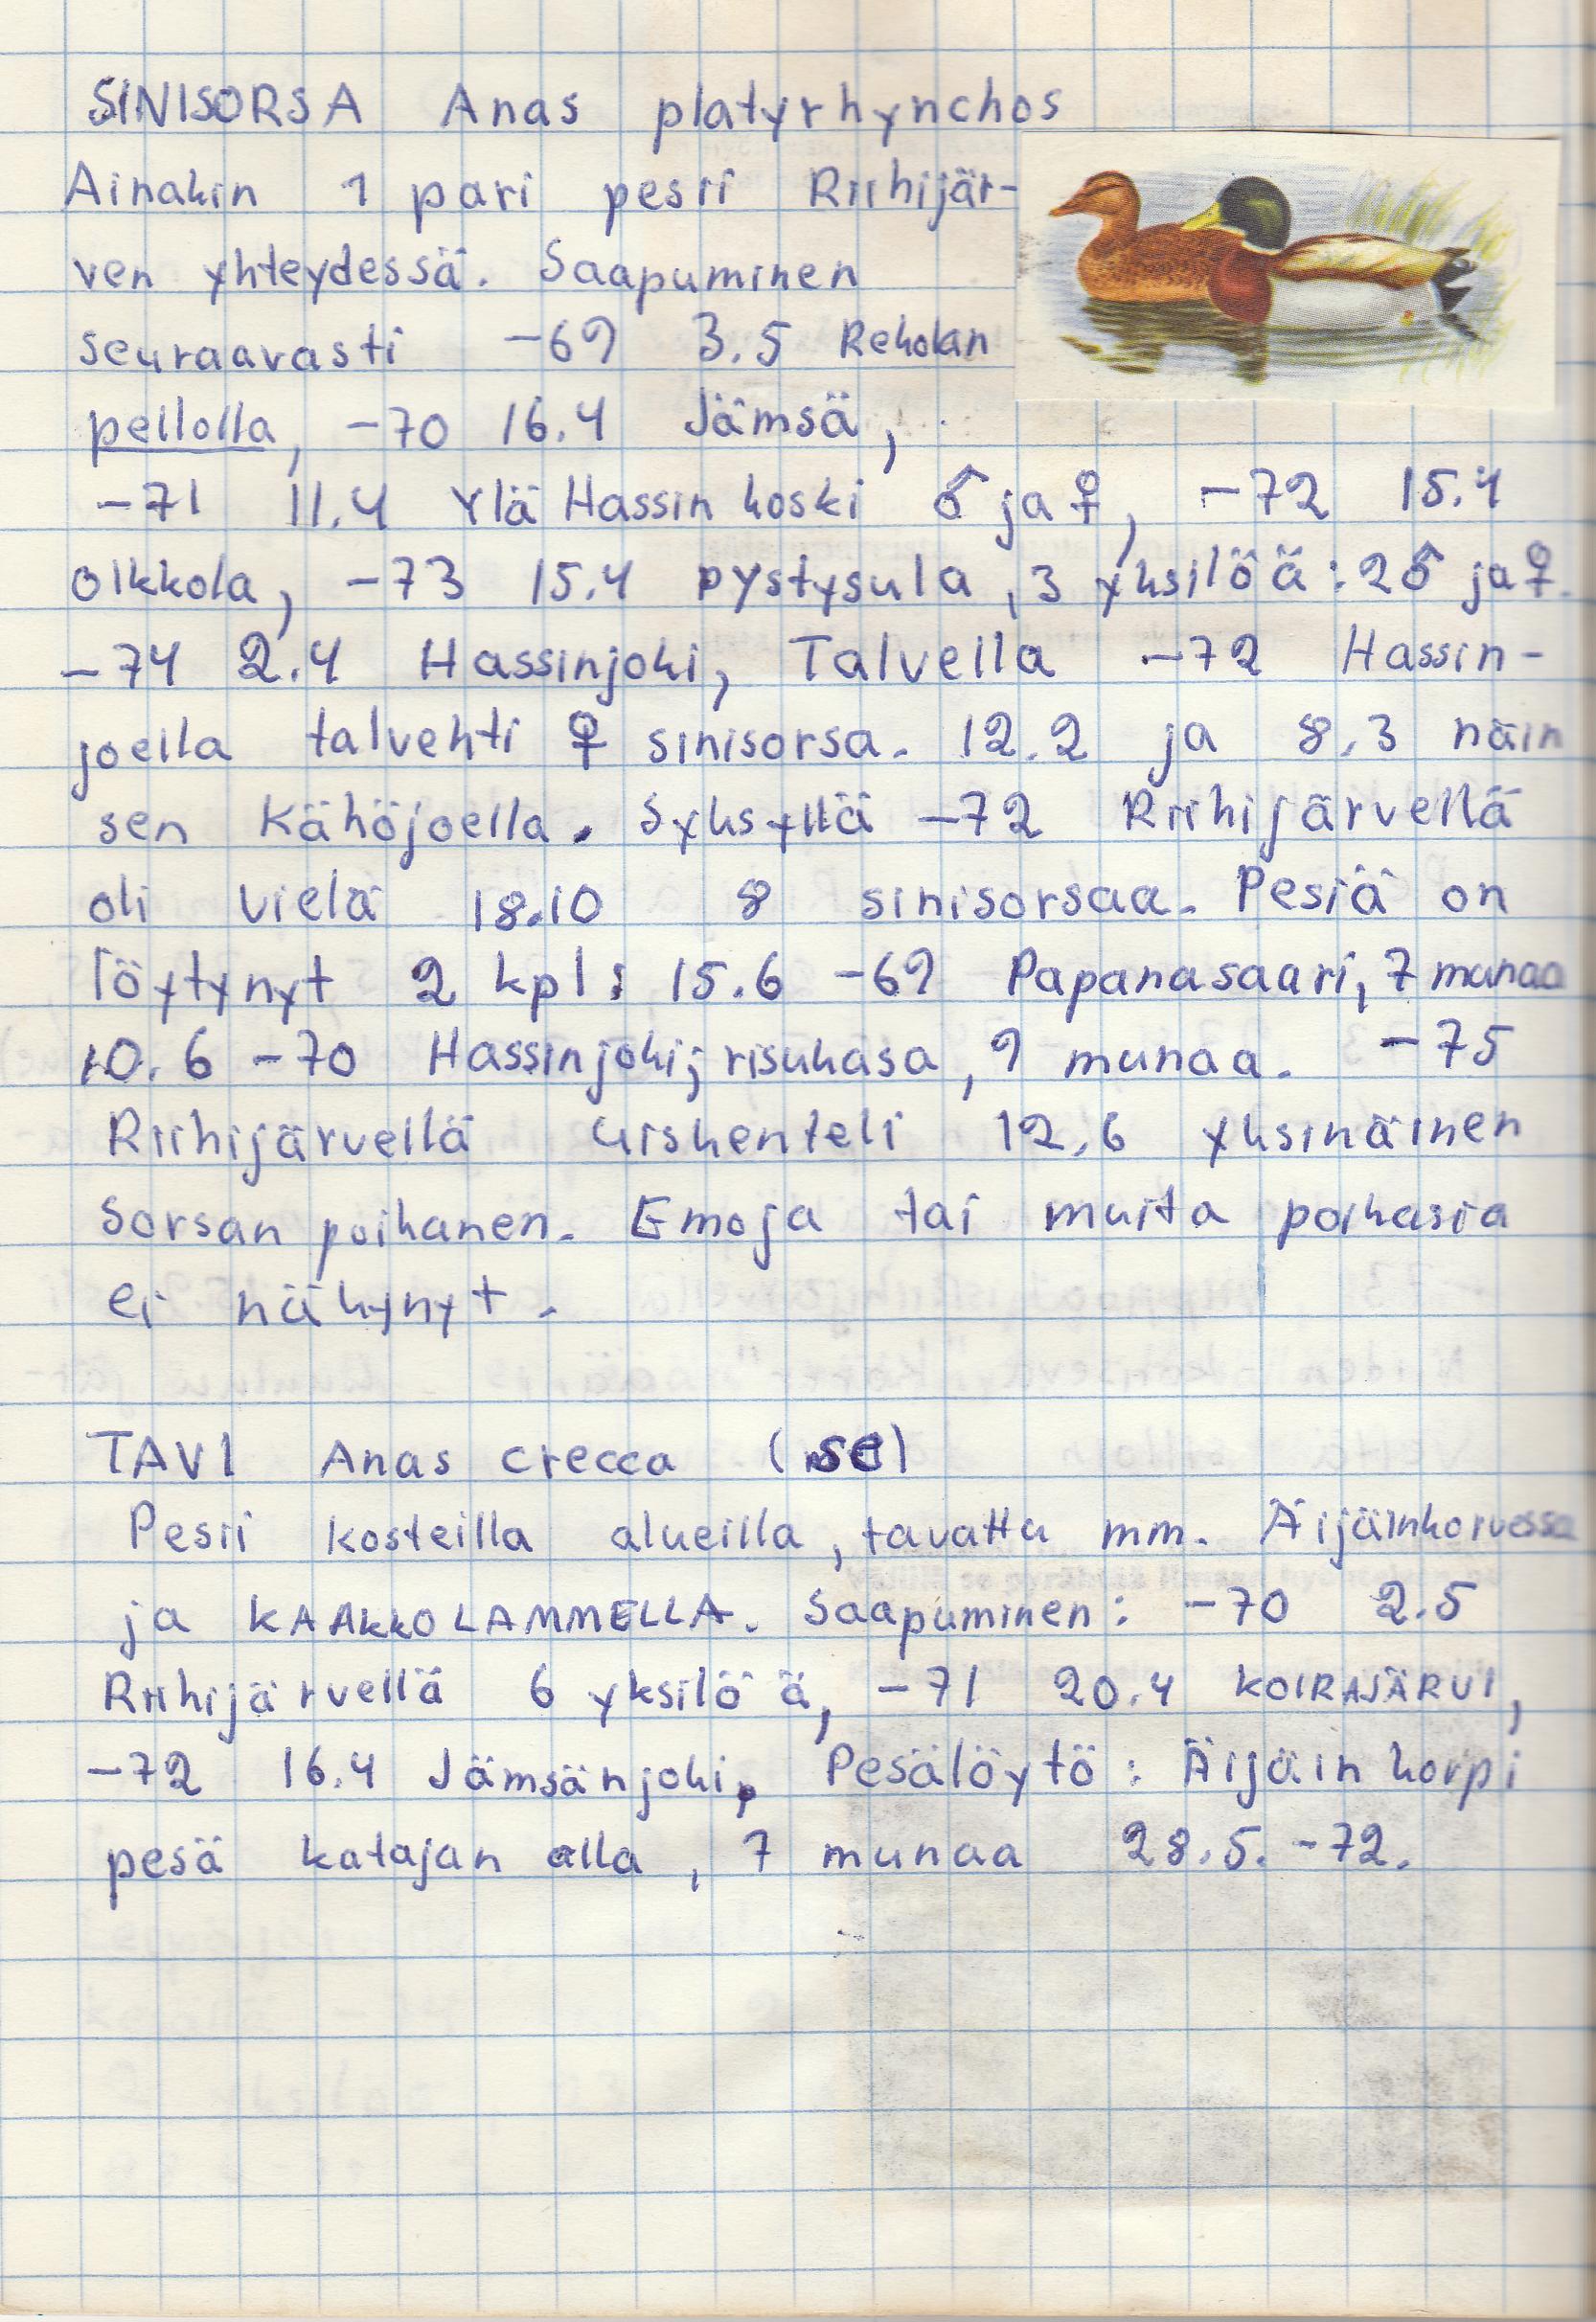 SINISORSA Anas platyrhynchos
Ainakin 1 pari pesii Riihijär-
ven yhteydessä. Saapuminen
seuraavasti -69 3.5 Rekolan
pellolla, -70 16.4 Jämsä,
-71 11.4 Ylä Hassin koski ♂ ja ♀, -72 15.4
Olkkola, -73 15.4 pystysula, 3 yksilöä: 2♂ ja ♀.
-74 2.4 Hassinjoki, Talvella -72 Hassin-
joella talvehti ♀ sinisorsa. 12.2 ja 8.3 näin
sen Kähöjoella. Syksyllä -72 Riihijärvellä
oli vielä 18.10 8 sinisorsaa. Pesiä on
löytynyt 2 kpl: 15.6 -69 Papanasaari, 7 munaa
10.6 -70 Hassinjoki; risukasa, 9 munaa. -75
Riihijärvellä uiskenteli 12.6 yksinäinen
sorsan poikanen. Emoja tai muita poikasia
ei näkynyt.
TAVI Anas crecca (se)
Pesii kosteilla alueilla, tavattu mm. Äijäinkorvessa
ja KAAkkOLAMMELLA. Saapuminen: -70 2.5
Riihijärvellä 6 yksilöä, -71 20.4 KOIRAJÄRVI,
-72 16.4 Jämsänjoki, Pesälöytö: Äijäin korpi
pesä katajan alla, 7 munaa 28.5. -72.